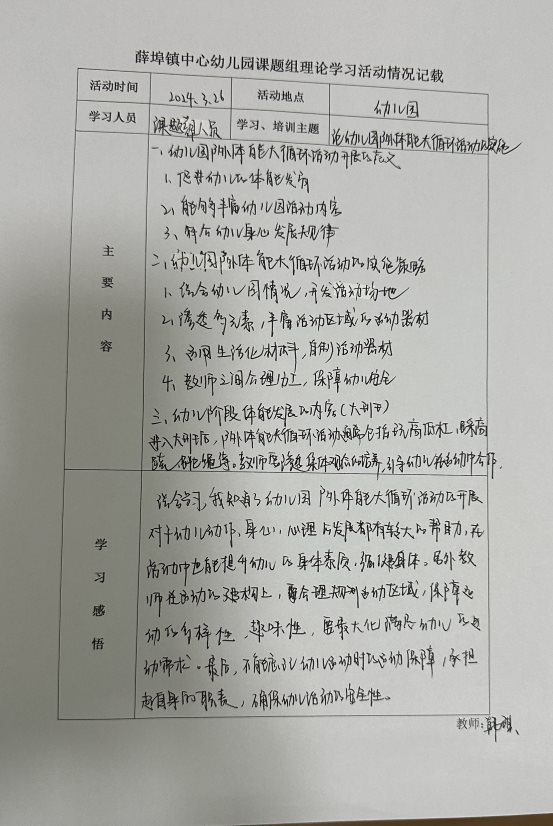 薛埠镇中心幼儿园课题组理论学习活动情况记载
活动时间 2024.3.26 活动地点 幼儿园
学习人员 课题组人员 学习、培训主题 论幼儿园户外体能大循环活动的实施
主要内容
一、幼儿园户外体能大循环活动开展的意义
1、促进幼儿的体能发育
2、能够丰富幼儿园活动内容
3、符合幼儿身心发展规律
二、幼儿园户外体能大循环活动的实施策略
1、结合幼儿园情况，开发活动场地
2、渗透多元素，丰富活动区域的活动器材
3、运用生活化材料，自制活动器材
4、教师之间合理分工，保障幼儿安全
三、幼儿阶段体能发展的内容（大班）
进入大班后，户外体能大循环活动通常包括玩高低杠、踩高
跷 等。教师要渗透集体观念的培养，引导幼儿在活动中合作.
学习感悟
结合学习，我知道了幼儿园户外体能大循环活动的开展
对于幼儿动作、身心，心理的发展都有较大的帮助，在
活动中也能提升幼儿的身体素质，锻炼身体。另外教
师在活动的建构上，要合理规划活动区域，保障运
动的多样性、趣味性，要最大化满足幼儿的运
动需求。最后，不能忘记幼儿活动时的活动保障，承担
起自身的职责，确保幼儿活动的安全性。
教师：